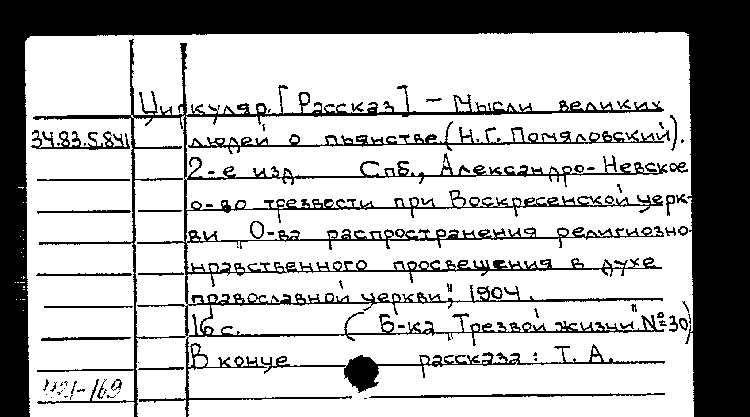 Циркуляр. [Рассказ] - Мысли великих
34.83.5.841 людей о пьянстве (Н.Г. Помяловский).
2-е изд Спб., Александро-Невское
о-во трезвости при Воскресенской церк-
ви „О-ва распространения религиозно-
нравственного просвещения в духе
православной церкви", 1904.
16 с. (Б-ка „Трезвой жизни" №30)
В конце рассказа: Т. А.
421-169